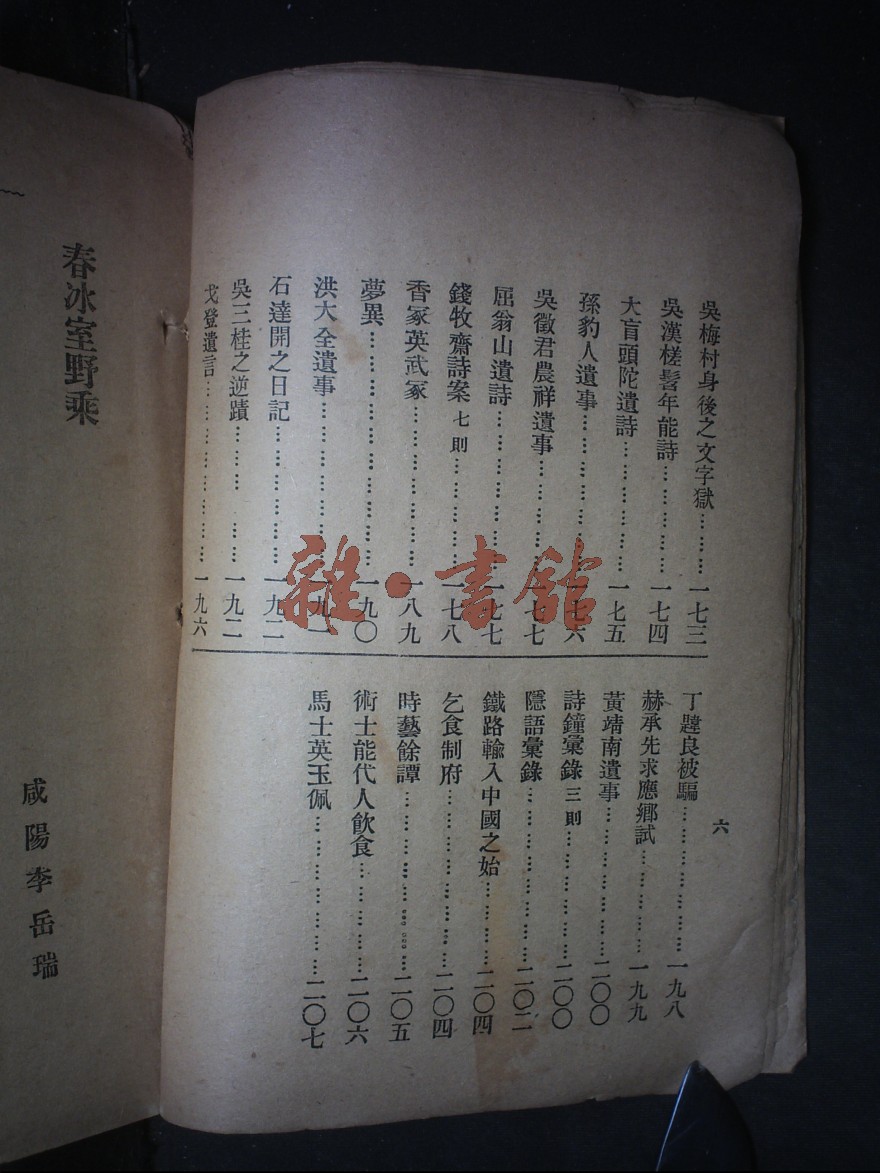 吳梅村身後之文字獄………一七三
吳漢槎髫年能詩…………一七四
大盲頭陀遺詩……………一七五
孫豹人遺事………………一七六
吳徵君農祥遺事…………一七七
屈翁山遺詩………………一七七
錢牧齋詩案 七則…………一七八
香冢英武冢………………一八九
夢異………………………一九〇
洪大全遺事………………一九一
石達開之日記……………一九二
吳三桂之逆蹟……………一九二
戈登遺言…………………一九六
六
丁韙良被騙………………一九八
赫承先求應鄉試…………一九九
黃靖南遺事………………二〇〇
詩鐘彙錄 三則……………二〇〇
隱語彙錄…………………二〇二
鐵路輸入中國之始………二〇四
乞食制府…………………二〇四
時藝餘譚…………………二〇五
術士能代人飲食…………二〇六
馬士英玉佩………………二〇七
春冰室野乘
咸陽李岳瑞
雜·書館